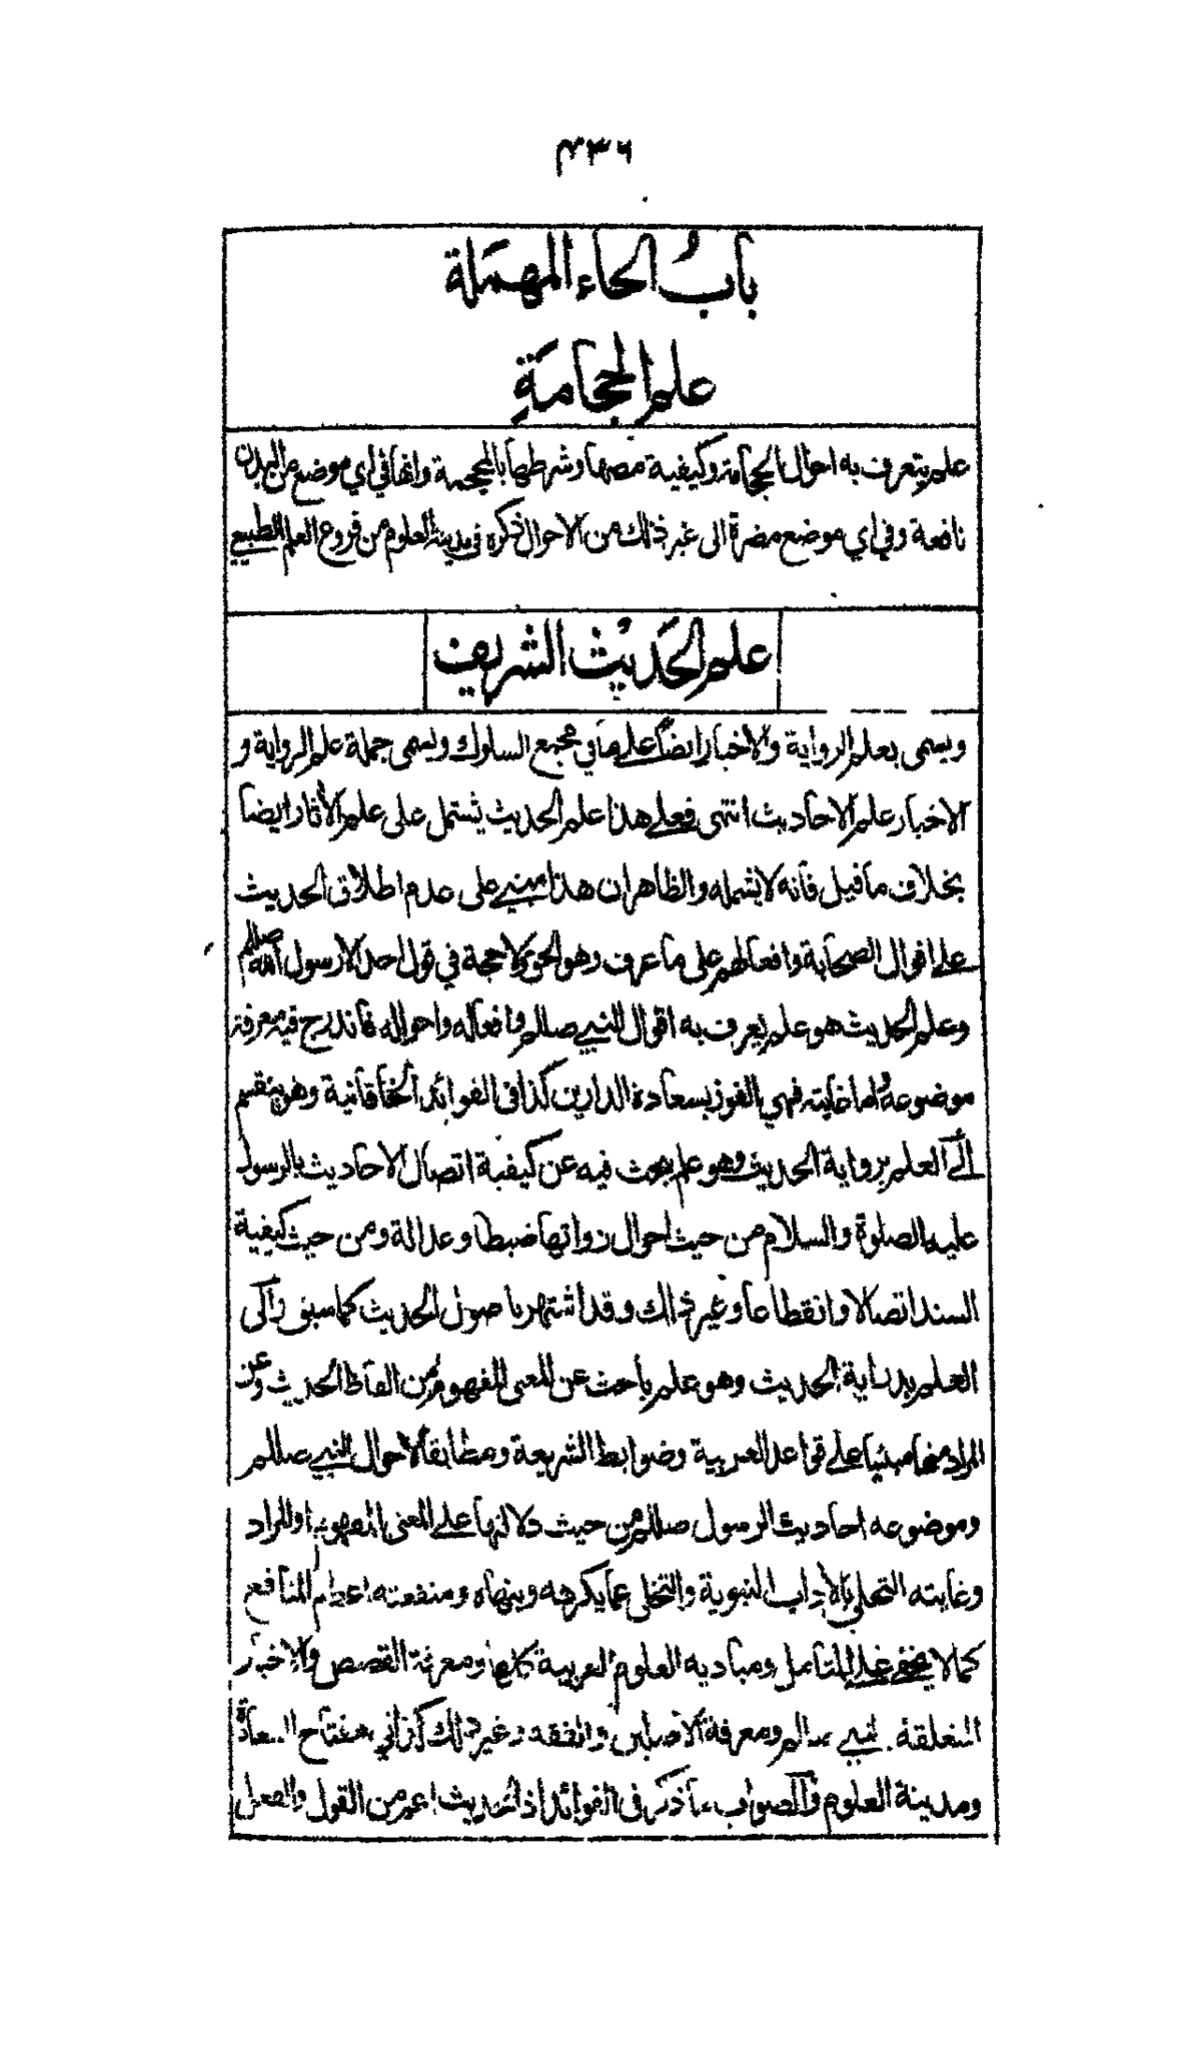 ۴۳۶
بابُ الحاء المهملة
علم الحجامةِ
علم يتعرف به احوال الحجامة وكيفية مصها وشرطها بالمحجمة وانها في اي موضع من البدن
نافعة وفي اي موضع مضرة الى غير ذلك من الاحوال ذكره في مدينة العلوم من فروع العلم الطبيعي
علم الحَديث الشريف
ويسمى بعلم الرواية والاخبار ايضاً على ما في مجمع السلوك ويسمى جملة علم الرواية و
الاخبار علم الاحاديث انتهى فعلى هذا علم الحديث يشتمل على علم الأثار ايضا
بخلاف ما قيل فانه لا يشمله والظاهر ان هذا مبني على عدم اطلاق الحديث
على اقوال الصحابة وافعالهم على ما عرف وهو الحق ولا حجة في قول احد الا رسول الله صللم
وعلم الحديث هو علم يعرف به اقوال النبي صللم وافعاله واحواله فاندرج فيه معرفة
موضوعه واما غايته فهي الفوز بسعادة الدارين كذا في الفوائد الخاقانية وهو ينقسم
الى العلم برواية الحديث وهو علم يبحث فيه عن كيفية اتصال الاحاديث بالرسول
عليه الصلوة والسلام من حيث احوال رواتها ضبطا وعدالة ومن حيث كيفية
السند اتصالا وانقطاعا وغير ذلك وقد اشتهر باصول الحديث كما سبق والى
العلم بدراية الحديث وهو علم باحث عن المعنى المفهوم من الفاظ الحديث وعن
المراد منها مبنيا على قواعد العربية وضوابط الشريعة ومطابقا لاحوال النبي صللم
وموضوعه احاديث الرسول صللم من حيث دلالتها على المعنى المفهوم او المراد
وغايته التحلي بالأداب النبوية والتخلي عما يكرهه وينهاه ومنفعته اعظم المنافع
كما لا يخفى على المتأمل ومباديه العلوم العربية كلها ومعرفة القصص والاخبار
المتعلقة بالنبي صللم ومعرفة الاصلين والفقه وغير ذلك كذا في مفتاح السعادة
ومدينة العلوم والصواب ما ذكر في الفوائد اذ الحديث اعم من القول والفعل